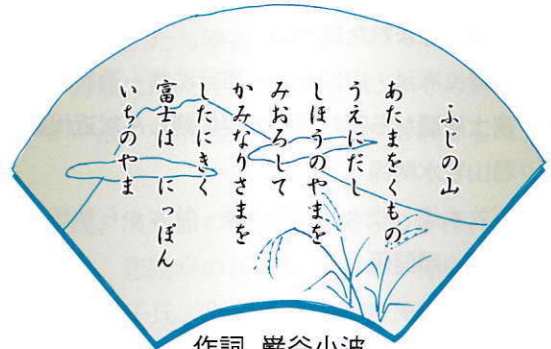 ふじの山
あたまをくもの
うえにだし
しほうのやまを
みおろして
かみなりさまを
したにきく
富士は にっぽん
いちのやま
作詞 巌谷小波